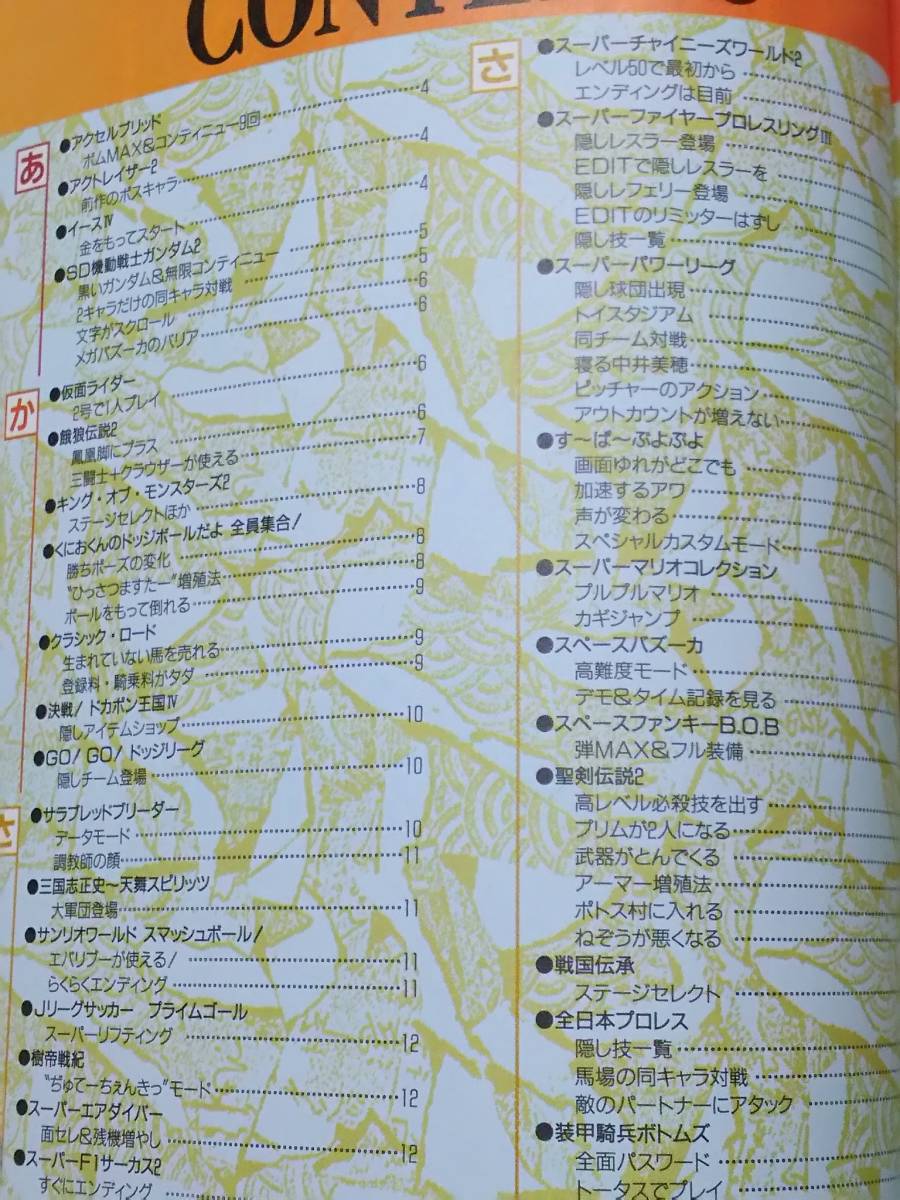 CONTE
あ
●アクセルブリッド
ボムMAX&コンティニュー9回 4
●アクトレイザー2
前作のボスキャラ 4
●イースⅣ
金をもってスタート 4
●SD機動戦士ガンダム2
黒いガンダム&無限コンティニュー 5
2キャラだけの同キャラ対戦 5
文字がスクロール 6
メガバズーカのバリア 6
か
●仮面ライダー
2号で1人プレイ 6
●餓狼伝説2
鳳凰脚にプラス 6
三闘士+クラウザーが使える 7
●キング・オブ・モンスターズ2
ステージセレクトほか 8
●くにおくんのドッジボールだよ 全員集合!
勝ちポーズの変化 8
"ひっさつますたー"増殖法 8
ボールをもって倒れる 9
●クラシック・ロード
生まれていない馬を売れる 9
登録料・騎乗料がタダ 9
●決戦!ドカポン王国Ⅳ
隠しアイテムショップ 10
●GO!GO!ドッジリーグ
隠しチーム登場 10
さ
●サラブレッドブリーダー
データモード 10
調教師の顔 11
●三国志正史〜天舞スピリッツ
大軍団登場 11
●サンリオワールド スマッシュボール!
エバリブーが使える! 11
らくらくエンディング 11
●Jリーグサッカー プライムゴール
スーパーリフティング 12
●樹帝戦紀
"ぢゅてーちぇんきっ"モード 12
●スーパーエアダイバー
面セレ&残機増やし 12
●スーパーF1サーカス2
すぐにエンディング
さ
●スーパーチャイニーズワールド2
レベル50で最初から
エンディングは目前
●スーパーファイヤープロレスリングⅢ
隠しレスラー登場
EDITで隠しレスラーを
隠しレフェリー登場
EDITのリミッターはずし
隠し技一覧
●スーパーパワーリーグ
隠し球団出現
トイスタジアム
同チーム対戦
寝る中井美穂
ピッチャーのアクション
アウトカウントが増えない
●す〜ぱ〜ぷよぷよ
画面ゆれがどこでも
加速するアワ
声が変わる
スペシャルカスタムモード
●スーパーマリオコレクション
プルプルマリオ
カギジャンプ
●スペースバズーカ
高難度モード
デモ&タイム記録を見る
●スペースファンキーB.O.B
弾MAX&フル装備
●聖剣伝説2
高レベル必殺技を出す
プリムが2人になる
武器がとんでくる
アーマー増殖法
ポトス村に入れる
ねぞうが悪くなる
●戦国伝承
ステージセレクト
●全日本プロレス
隠し技一覧
馬場の同キャラ対戦
敵のパートナーにアタック
●装甲騎兵ボトムズ
全面パスワード
トータスでプレイ